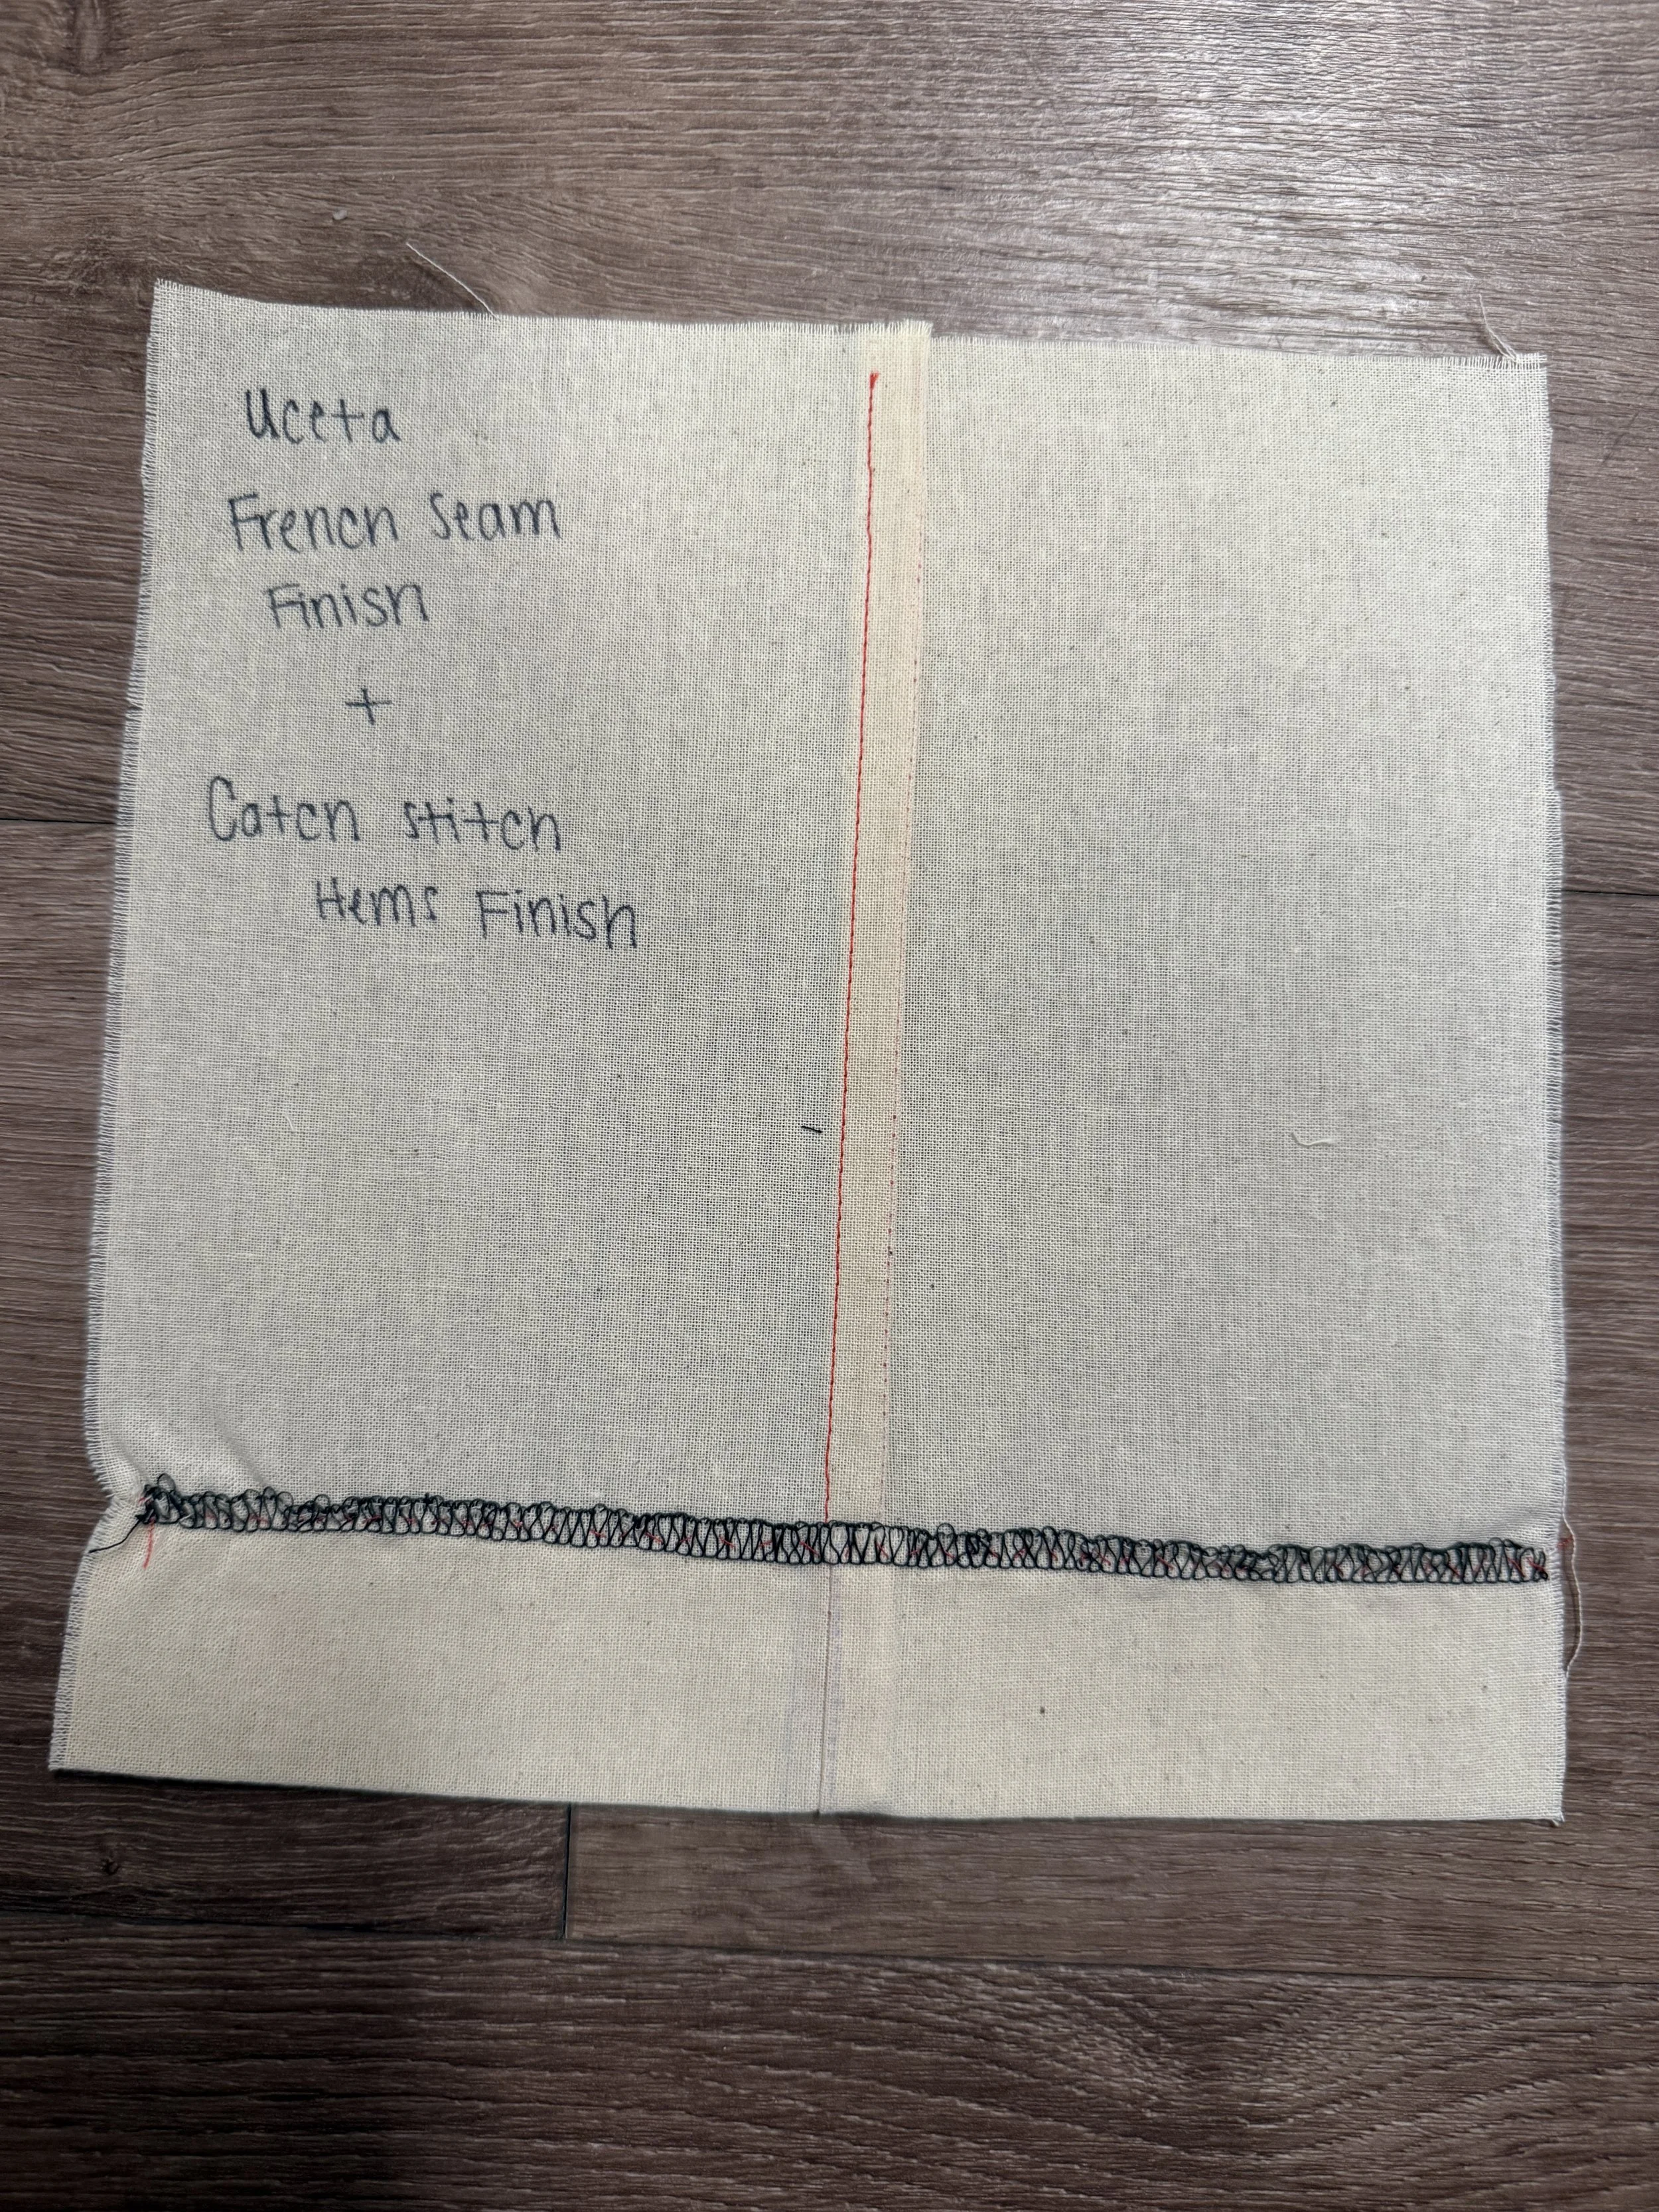 Uceta
French Seam
Finish
+
Catch stitch
Hems Finish